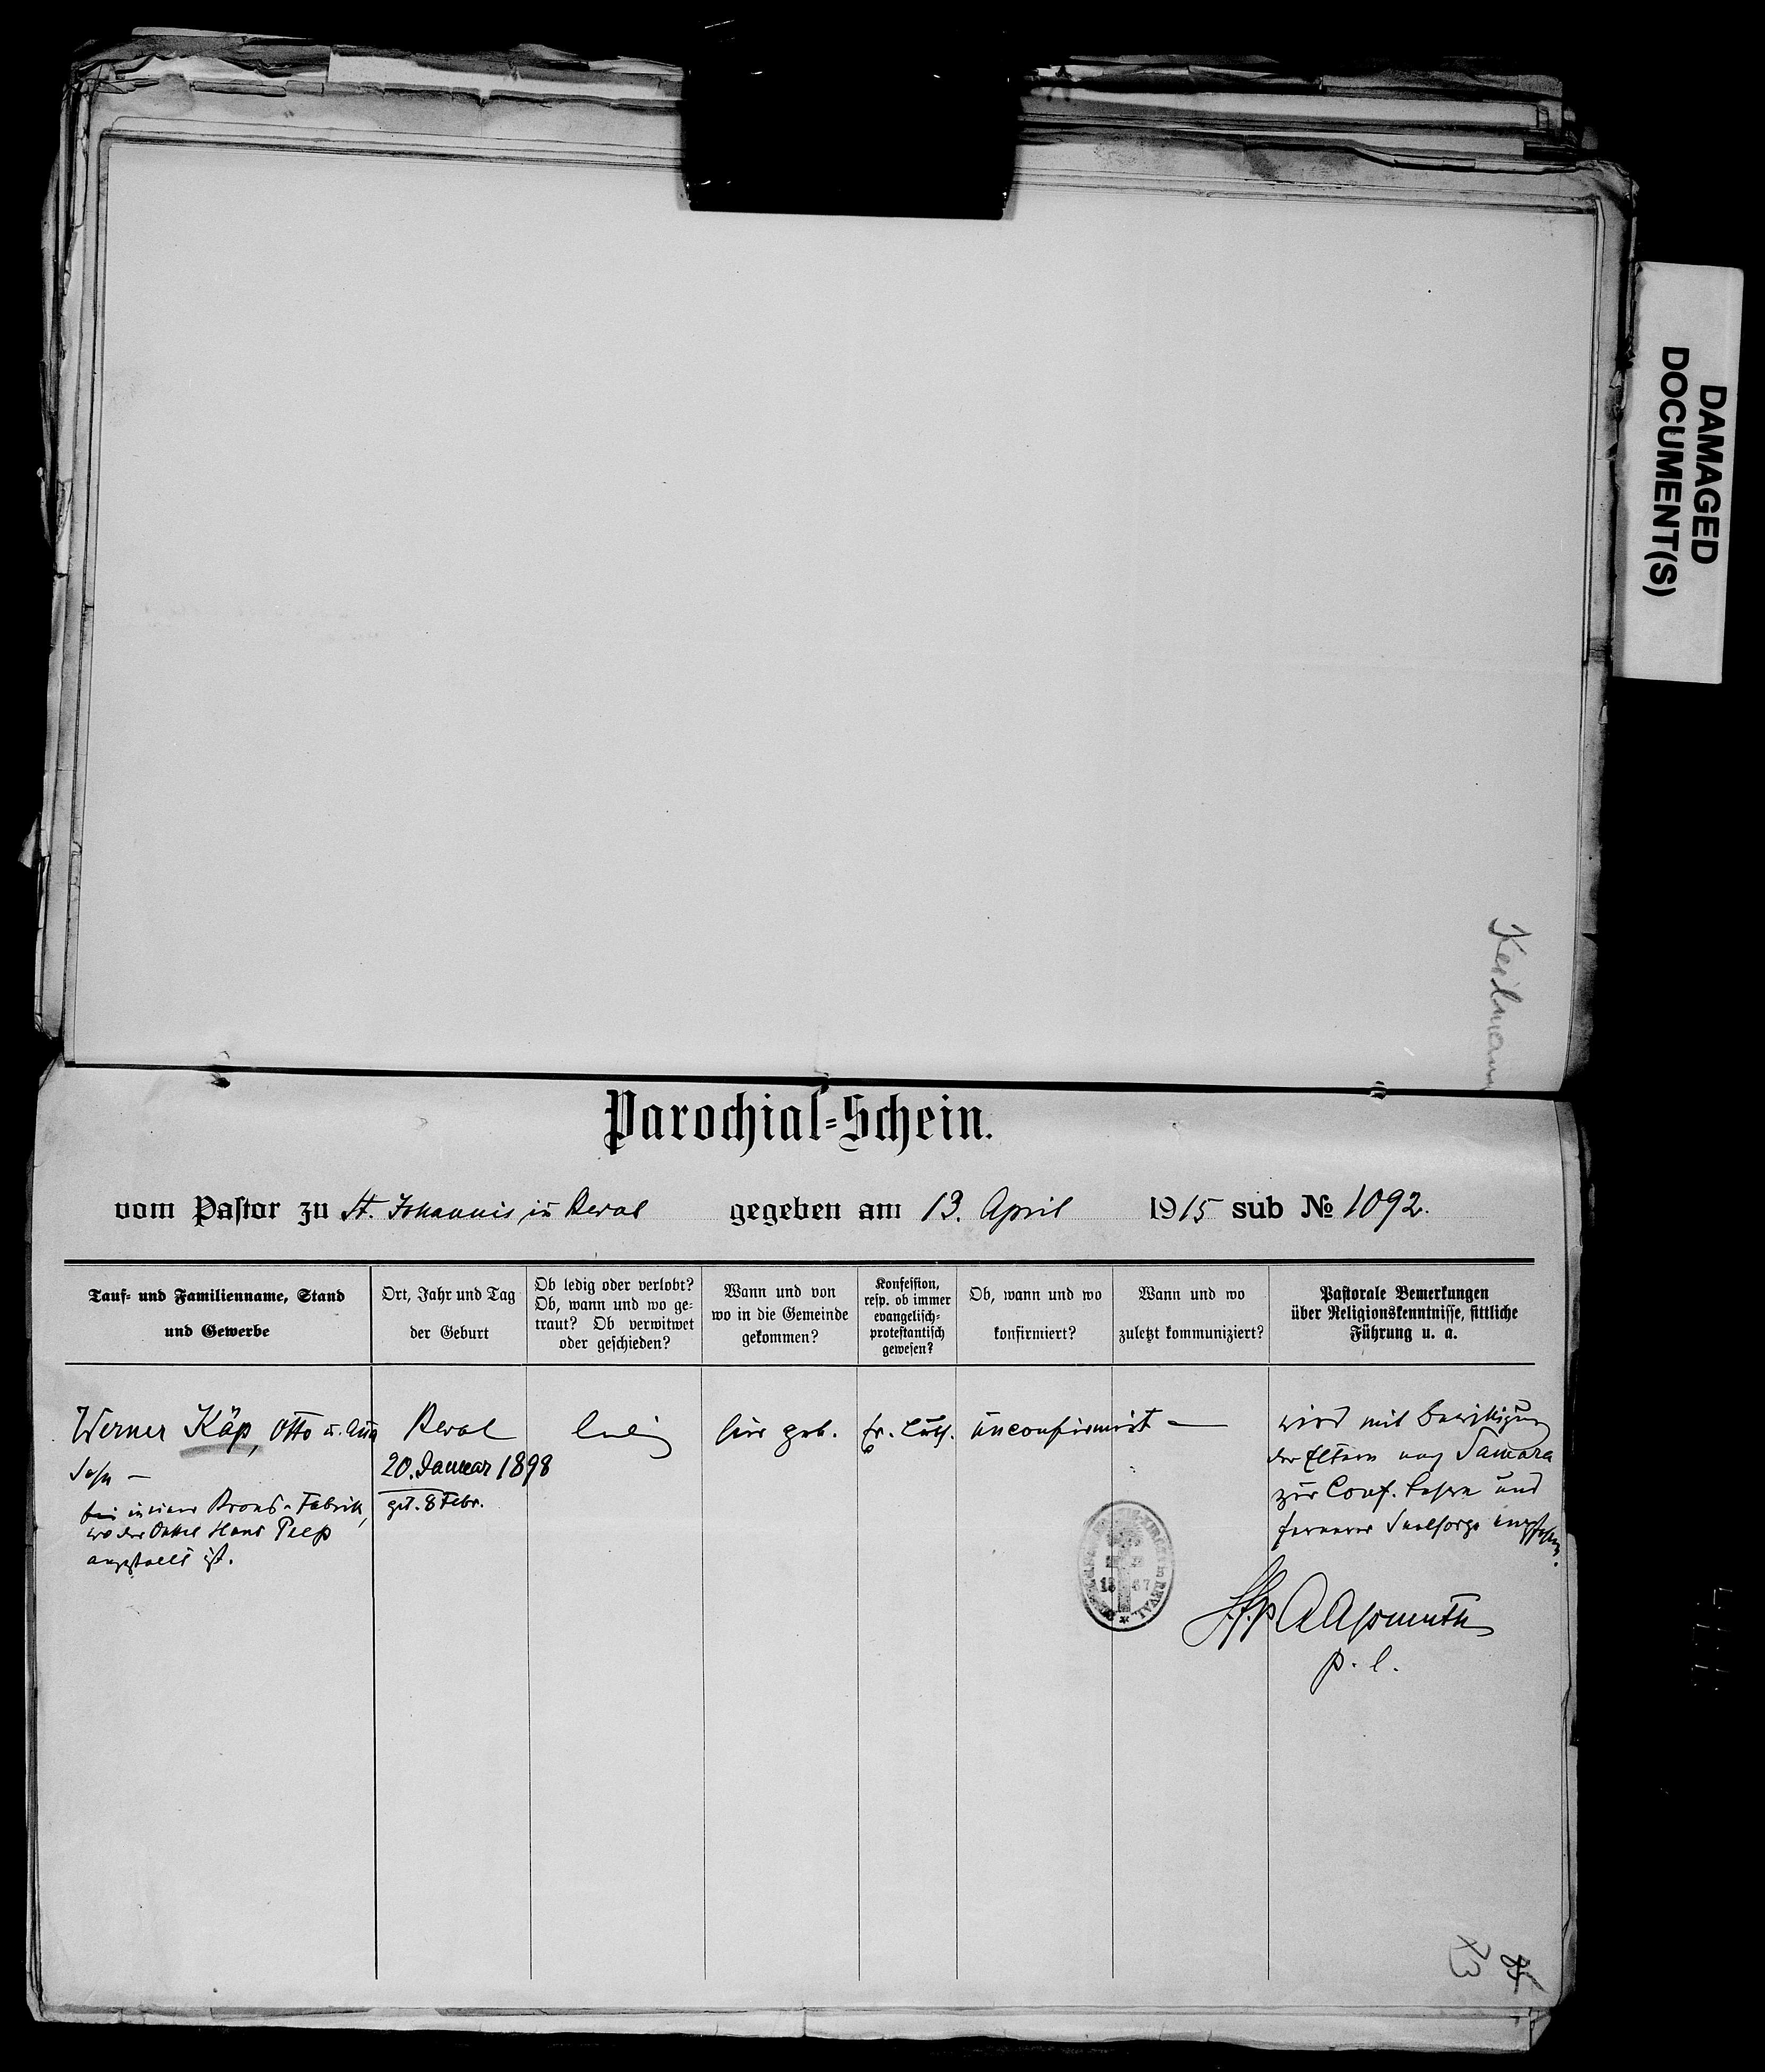 DAMAGED
DOCUMENT(S)
Keilmann
Parochial-Schein.
vom Pastor zu St. Johannis in Reval gegeben am 13. April 1915 sub № 1092.
Tauf- und Familienname, Stand
und Gewerbe
Ort, Jahr und Tag
der Geburt
Ob ledig oder verlobt?
Ob, wann und wo ge-
traut? Ob verwitwet
oder geschieden?
Wann und von
wo in die Gemeinde
gekommen?
Konfession,
resp. ob immer
evangelisch-
protestantisch
gewesen?
Ob, wann und wo
konfirmiert?
Wann und wo
zuletzt kommuniziert?
Pastorale Bemerkungen
über Religionskenntnisse, sittliche
Führung u. a.
Werner Käp, Otto u. Anna
Sohn —
in einer Krons-Fabrik,
wo der Onkel Hans Peep
angestellt ist.
Reval
20. Januar 1898
get. 8 Febr.
ledig
hier geb.
ev. luth.
unconfirmirt
—
wird mit Bewilligung
der Eltern nach Samara
zur Conf. Lehre und
fernerer Seelsorge empfohlen.
18 67
REVAL
p. l.
73